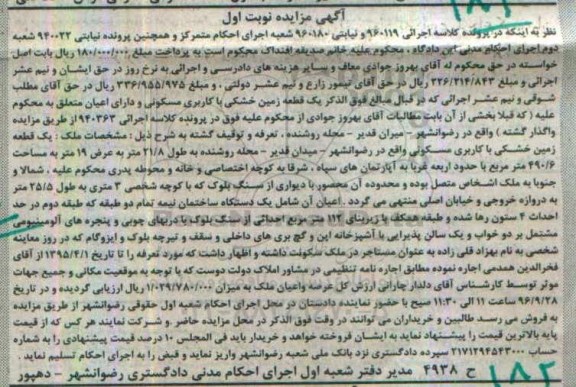 آگهی مزایده نوبت اول
نظر به اینکه در پرونده کلاسه اجرائی ۹۶۰۱۱۹ و نیابتی ۹۶۰۱۸۰ شعبه اجرای احکام متمرکز و همچنین پرونده نیابتی ۹۴۰۰۲۲ شعبه
دوم اجرای احکام مدنی این دادگاه ، محکوم علیه خانم صدیقه افتداک محکوم است به پرداخت مبلغ ۱۸۰/۰۰۰/۰۰۰ ریال بابت اصل
خواسته در حق محکوم له آقای بهروز جوادی معاف و سایر هزینه های دادرسی و اجرائی به نرخ روز در حق ایشان و نیم عشر
اجرائی و مبلغ ۲۲۶/۳۱۴/۸۴۳ ریال در حق آقای تیمور زارع و نیم عشر دولتی ، و مبلغ ۳۳۶/۹۵۵/۹۷۵ ریال در حق آقای مطلب
شوقی و نیم عشر اجرائی که در قبال مبالغ فوق الذکر یک قطعه زمین خشکی با کاربری مسکونی و دارای اعیان متعلق به محکوم
علیه ( که قبلا بخشی از آن بابت مطالبات آقای بهروز جوادی از محکوم علیه فوق در پرونده کلاسه اجرائی ۹۴۰۳۶۳ از طریق مزایده
واگذار گشته ) واقع در رضوانشهر – میران قدیر – محله روشنده ، تعرفه و توقیف گشته به شرح ذیل : مشخصات ملک : یک قطعه
زمین خشکی با کاربری مسکونی واقع در رضوانشهر – میدان قدیر – محله روشنده به طول ۲۱/۸ متر به عرض ۱۹ متر به مساحت
۴۹۰/۶ متر مربع با حدود اربعه غربا به آپارتمان های سپاه ، شرقا به کوچه اختصاصی و خانه و محوطه پدری محکوم علیه ، شمالا و
جنوبا به ملک اشخاص متصل بوده و محدوده آن محصور با دیواری از سنگ بلوک که با کوچه شخصی ۳ متری به طول ۲۵/۵ متر
به دروازه خروجی و خیابان اصلی منتهی می گردد . اعیان آن شامل یک دستگاه ساختمان نیمه تمام دو طبقه که طبقه دوم در حد
احداث ۴ ستون رها شده و طبقه همکف با زیربنای ۱۱۲ متر مربع احداثی از سنگ بلوک با دربهای چوبی و پنجره های آلومینیومی
مشتمل بر دو خواب و یک سالن پذیرایی با آشپزخانه اپن و گچ بری های داخلی و سقف و تیرچه بلوک و ایزوگام که در روز معاینه
شخصی به نام بهزاد قلی زاده به عنوان مستاجر در ملک سکونت داشته و اظهار داشت که مورد تعرفه را تا تاریخ ۱۳۹۵/۴/۱ از آقای
فخرالدین همدمی اجاره نموده مطابق اجاره نامه تنظیمی در مشاور املاک دولت دوست که با توجه به موقعیت مکانی و جمیع جهات
موثر توسط کارشناس آقای دلدار چارانی ارزش کل عرصه واعیان ملک به میزان ۱/۰۲۹/۷۸۰/۰۰۰ ریال ارزیابی گردیده و در تاریخ
۹۶/۹/۲۸ ساعت ۱۱ الی ۱۱:۳۰ صبح با حضور نماینده دادستان در محل اجرای احکام شعبه اول حقوقی رضوانشهر از طریق مزایده
به فروش می رسد . طالبین و خریداران می توانند در وقت فوق الذکر در محل مزایده حاضر و شرکت نمایند هر کس که از قیمت
پایه بالاترین قیمت را پیشنهاد نماید به ایشان فروخته خواهد و خریدار باید فی المجلس ۱۰ درصد قیمت پیشنهادی را به شماره
حساب ۲۱۷۱۲۹۴۵۴۳۰۰۰ سپرده دادگستری نزد بانک ملی شعبه رضوانشهر واریز نماید و قبض را به اجرای احکام تسلیم نماید .
ح ۴۹۳۸ مدیر دفتر شعبه اول اجرای احکام مدنی دادگستری رضوانشهر – دهپور
۱۸۲